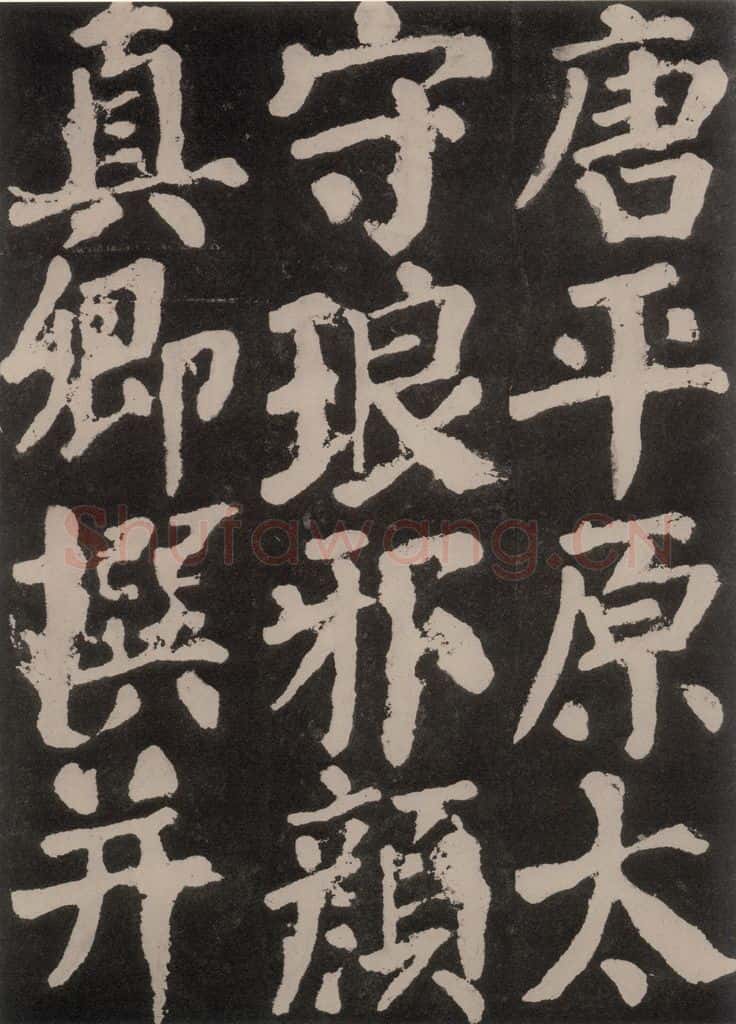 唐平原太
守琅邪顔
真卿撰并
Shufawang.CN